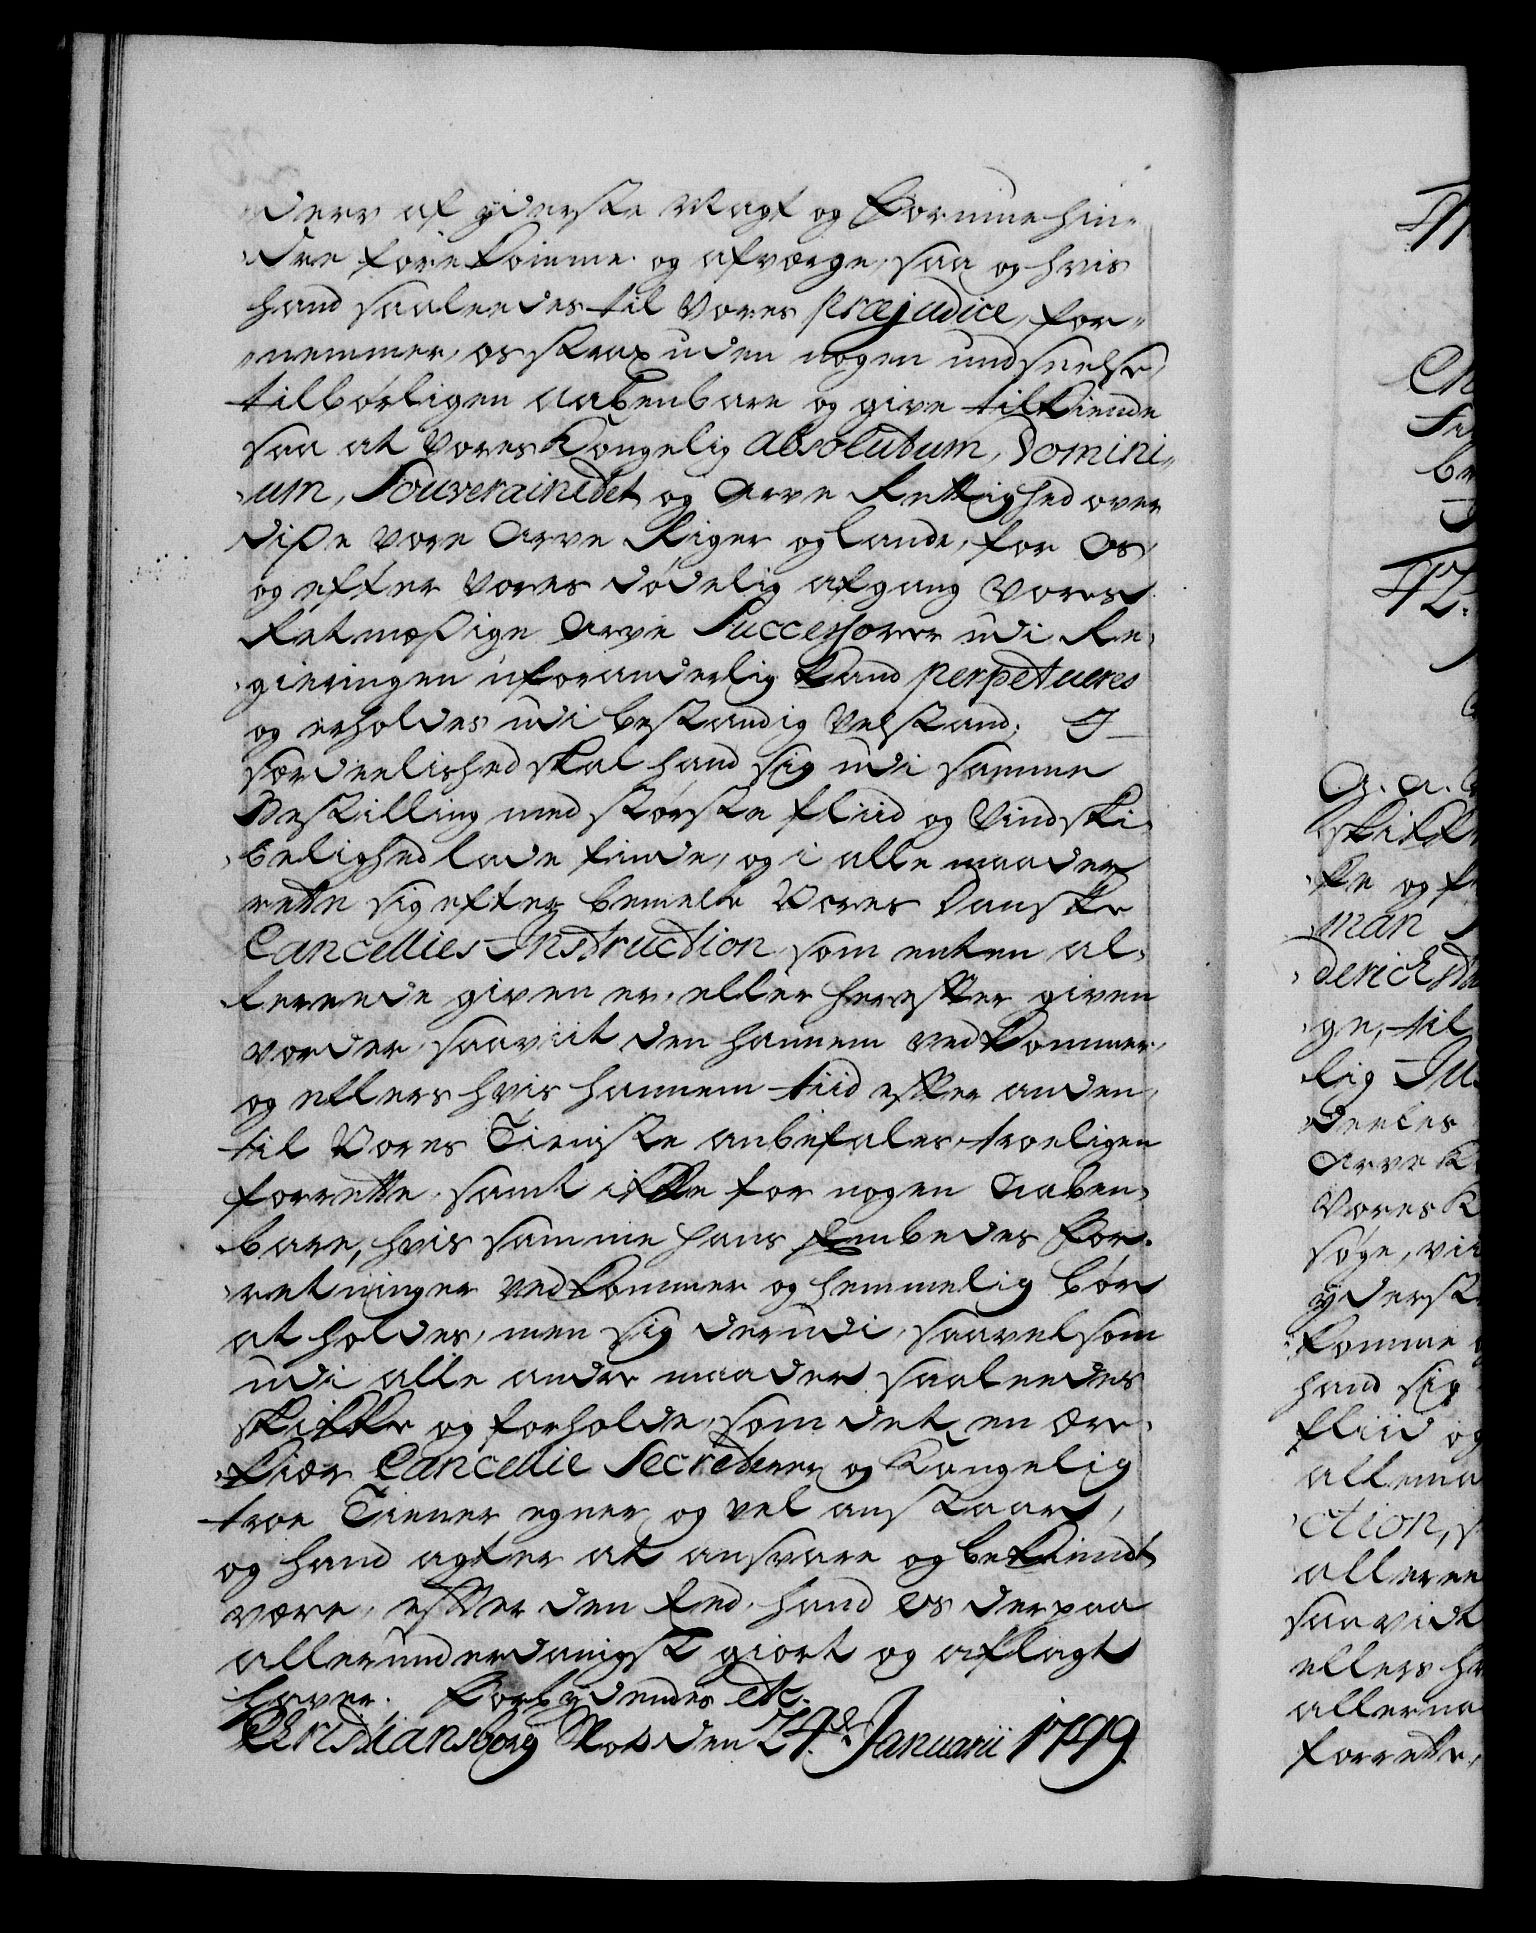 derr af yderste Magt og Formue hin-
dre forekomme og afværge, saa og hvis
hand saaleedes til Vores præjudice, for-
nemmer, os strax uden nogen undseelse
tilbørligen aabenbare og give tilkiende
saa at Vores Kongelig absolutum, Domini-
um, Souverainetet og Arve Rettighed over
diße Vore Arve Riger og lande, for Os,
og efter Vores dødelig afgang Vores
Retmæßige Arve Successorer udi Re-
gieringen uforanderlig kand perpetueres
og erholdes udi bestandig Velstand. I
særdeelished skal hand sig udi samme
Bestilling med største fliid og Vindski-
belighed lade finde, og i alle maader
rette sig efter bemelte Vores Danske
Cancellies-Instruction som enten al-
lereede given er, eller herefter given
vorder, saaviit den hannem vedkommer,
og ellers hvis hannem tiid efter anden,
til Vores Tieniste anbefales troeligen
forrette, samt ikke for nogen Aaben-
bare, hvis samme hans Embedes For-
retninger vedkommer og hemmelig bør
at holdes, men sig derudi, saavelsom
udi alle andre maader saaleedes
skikke og forholde, som det en ære-
kiær Cancellie Secreterer og Kongelig
troe Tiener egner og vel anstaar,
og hand agter at ansvare og bekiendt
være, efter den Eed, hand Os derpaa
allerunderdanigst giort og aflagt
haver. Forbydendes etc.
Christiansborg Slot den 24de Januarii 1749.
A. A.
ge, til
Arve K
Vores K
søge, vi
yderst
komme
hand sig
fliid og
ction, s
saavidt
forrette,